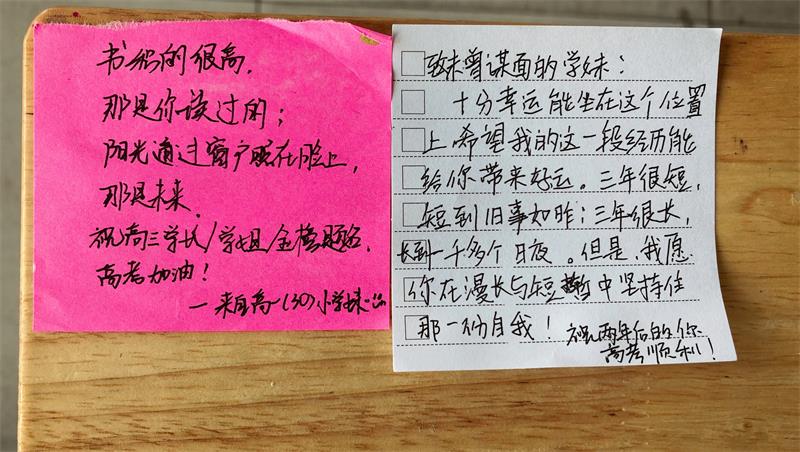 书织的很高，
那是你读过的；
阳光通过窗户照在脸上，
那是未来。
祝高三学长/学姐金榜题名，
高考加油！
—来自高一(30)小学妹
致未曾谋面的学妹：
十分幸运能坐在这个位置
上，希望我的这一段经历能
给你带来好运。三年很短，
短到旧事如昨；三年很长，
长到一千多个日夜。但是，我愿
你在漫长与短暂中坚持住
那一份自我！
祝两年后的你
高考顺利！